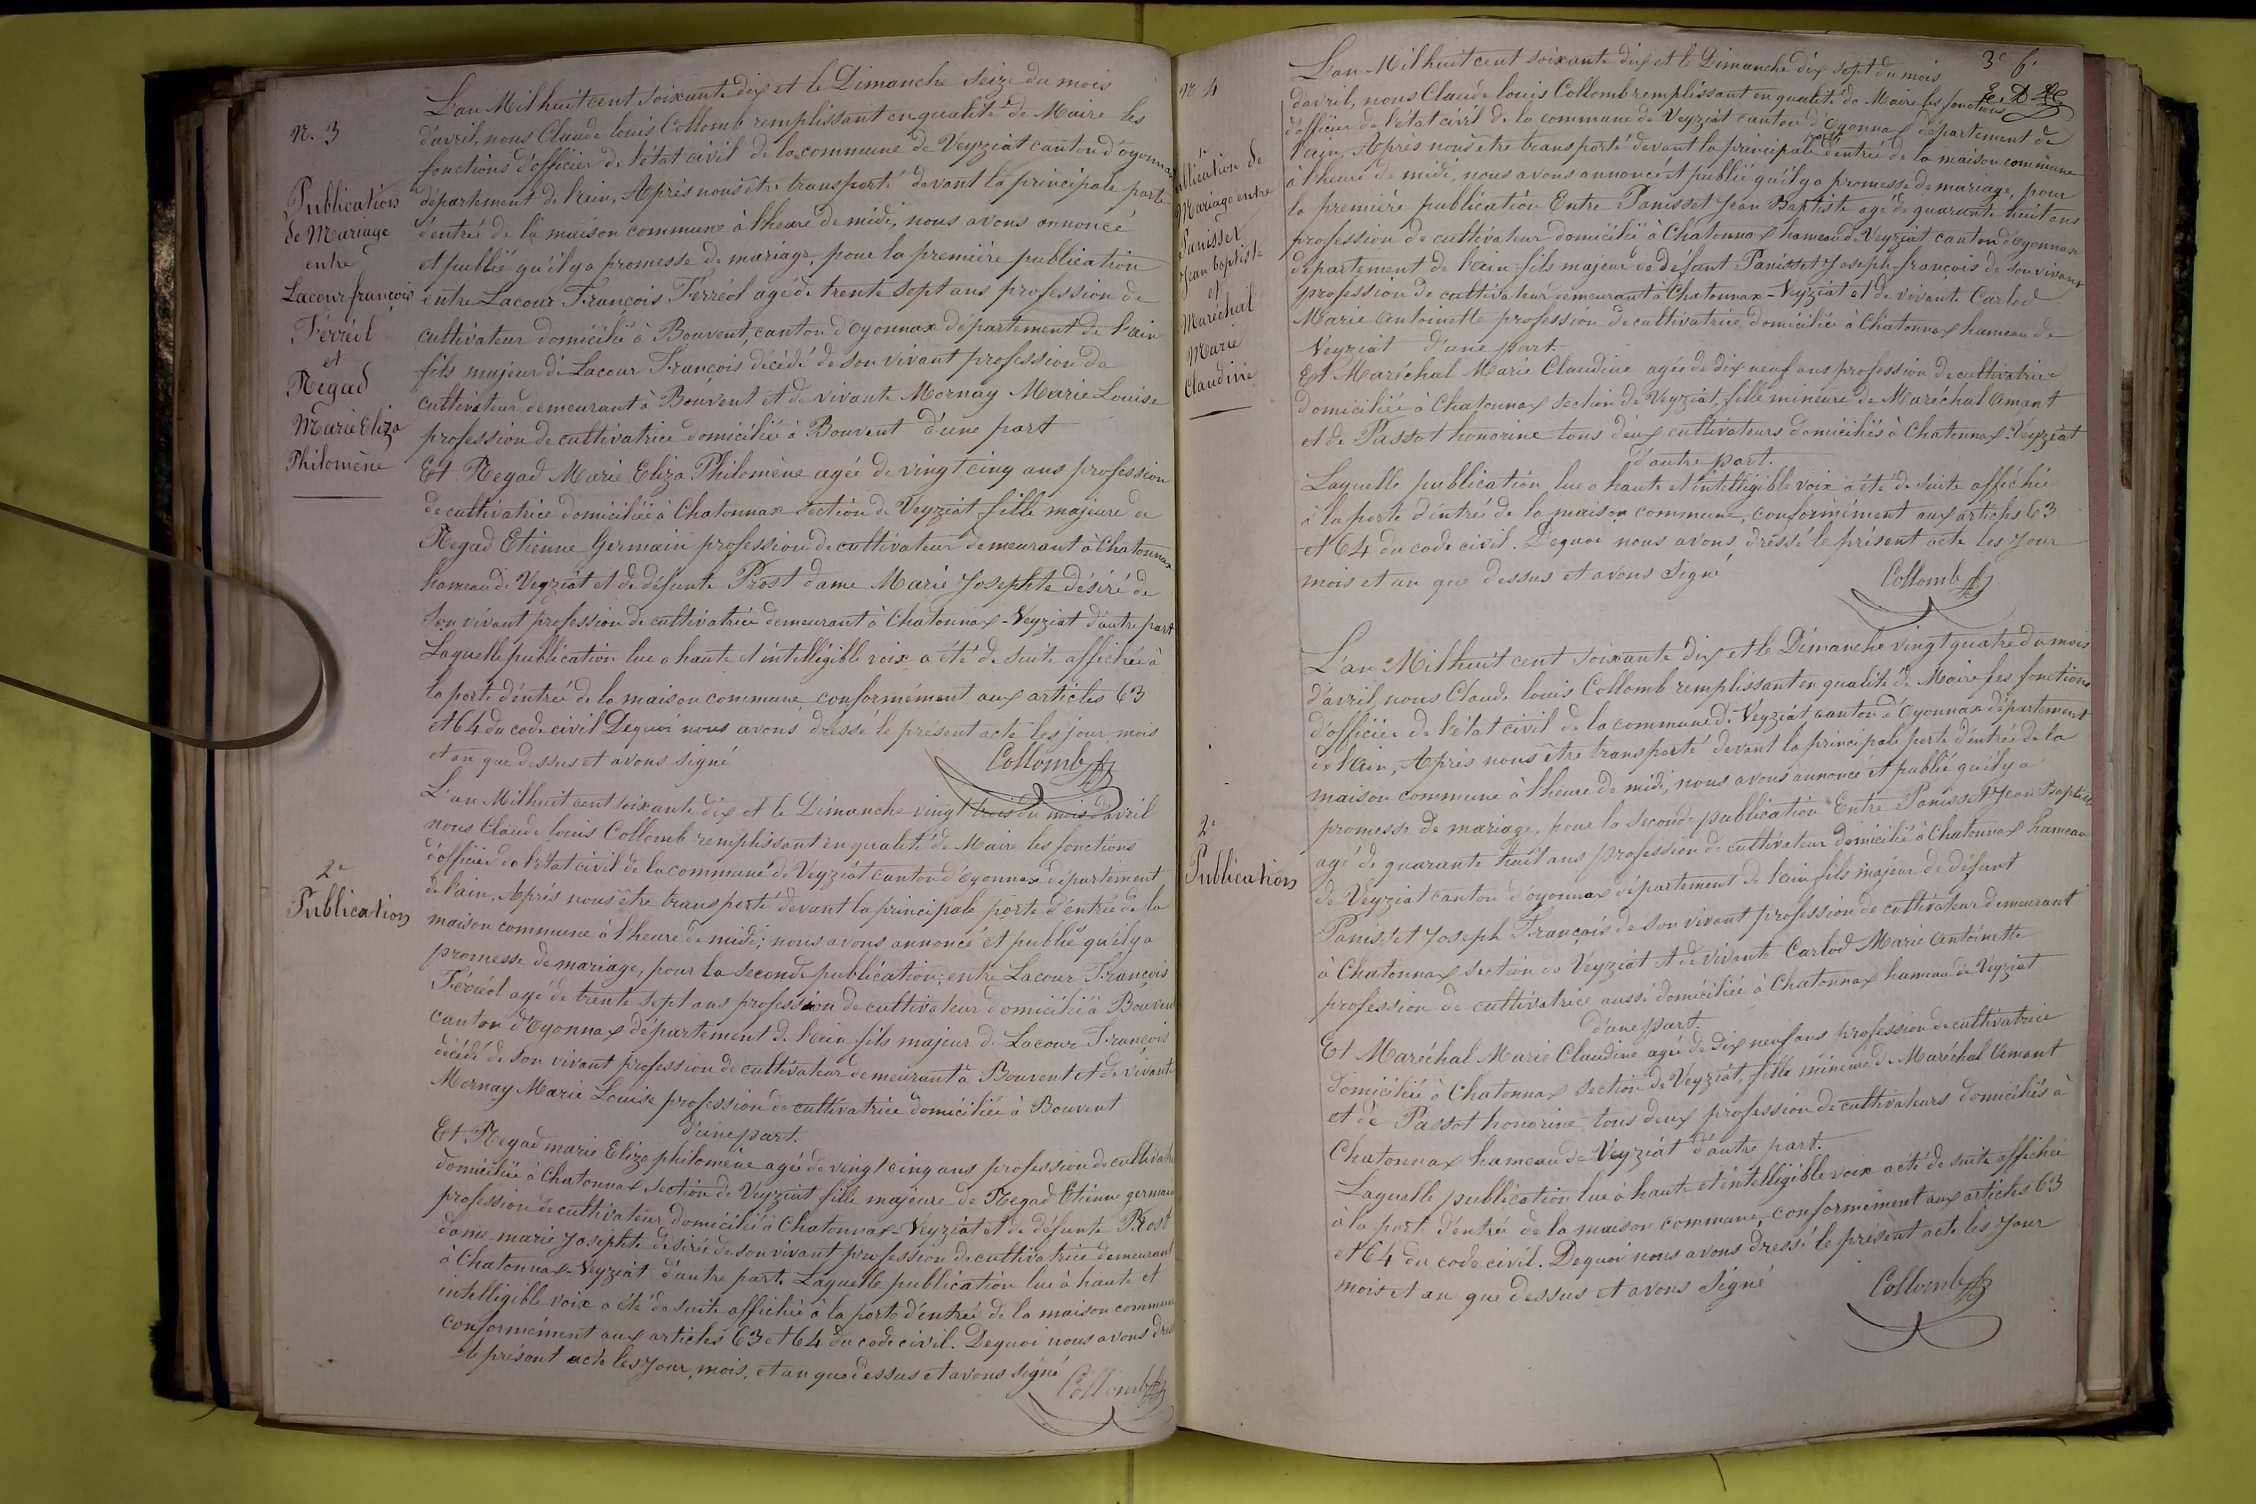 N. 3
Publication
de Mariage
entre
Lacour françois
Ferréol
et
Regad
Marie Eliza
Philomène
L'an Mil huit cent soixante dix et le Dimanche seize du mois
d'avril, nous Claude louis Collomb remplissant en qualité de Maire les
fonctions d'officier de l'état civil de la commune de Veyziat canton d'oyonnax
département de l'ain, Après nous être transporté devant la principale porte
d'entrée de la maison commune à l'heure de midi, nous avons annoncé
et publié qu'il y a promesse de mariage, pour la première publication
entre Lacour François Ferréol agé de trente sept ans profession de
cultivateur domicilié à Bouvent, canton d'oyonnax département de l'ain
fils majeur de Lacour François décédé de son vivant profession de
cultivateur demeurant à Bouvent et de vivante Mornay Marie Louise
profession de cultivatrice domiciliée à Bouvent d'une part
Et Regad Marie Eliza Philomène agée de vingt cinq ans profession
de cultivatrice domiciliée à Chatonnax section de Veyziat fille majeure de
Regad Etienne Germain profession de cultivateur demeurant à Chatonnax
hameau de Veyziat et de défunte Prost dame Marie Josephte désiré de
son vivant profession de cultivatrice demeurant à Chatonnax-Veyziat d'autre part
Laquelle publication lue a haute et intelligible voix a été de suite affichée à
la porte d'entrée de la maison commune conformément aux articles 63
et 64 du code civil Dequoi nous avons dressé le présent acte les jour mois
et an que dessus et avons signé
Collomb
2e
Publication
L'an Mil huit cent soixante dix et le Dimanche vingt trois du mois d'avril
nous Claude louis Collomb remplissant en qualité de Maire les fonctions
d'officier de l'état civil de la commune de Veyziat canton d'oyonnax département
de l'ain, Après nous être transporté devant la principale porte d'entrée de la
maison commune à l'heure de midi; nous avons annoncé et publié qu'il y a
promesse de mariage, pour la seconde publication; entre Lacour François
Ferréol agé de trente sept ans profession de cultivateur domicilié à Bouvent
canton d'Oyonnax département de l'ain fils majeur de Lacour François
décédé de son vivant profession de cultivateur demeurant à Bouvent et de vivante
Mornay Marie Louise profession de cultivatrice domiciliée à Bouvent
d'une part.
Et Regad marie Eliza philomène agée de vingt cinq ans profession de cultivatr
domiciliée à Chatonnax section de Veyziat fille majeure de Regad Etienne germain
profession de cultivateur domicilié à Chatonnax-Veyziat et de défunte Prost
dame marie Josephte désirée de son vivant profession de cultivatrice demeurant
à Chatonnax-Veyziat d'autre part Laquelle publication lue à haute et
intelligible voix a été de suite affichée à la porte d'entrée de la maison commune
conformément aux articles 63 et 64 du code civil. Dequoi nous avons dres
le présent acte les jour, mois, et an que dessus et avons signé
Collomb
3e f.
N. 4
1e
ublication de
Mariage entre
Panisset
Jean baptiste
et
Maréchal
Marie
Claudine
L'an Mil huit cent soixante dix et le Dimanche dix sept du mois
d'avril, nous Claude louis Collomb remplissant en qualité de Maire les fonctions
d'officier de l'état civil de la commune de Veyziat canton d'Oyonnax département de
l'ain, Après nous être transporté devant la principale porte d'entrée de la maison commune
à l'heure de midi, nous avons annoncé et publié qu'il y a promesse de mariage, pour
la première publication Entre Panisset Jean Baptiste agé de quarante huit ans
profession de cultivateur domicilié à Chatonnax hameau de Veyziat canton d'Oyonnax
département de l'ain fils majeur de défunt Panisset Joseph-françois de son vivant
profession de cultivateur demeurant à Chatonnax-Veyziat et de vivante Carlod
Marie Antoinette profession de cultivatrice, domiciliée à Chatonnax hameau de
Veyziat d'une part.
Et Maréchal Marie Claudine agée de dix neuf ans profession de cultivatrice
domiciliée à Chatonnax section de Veyziat, fille mineure de Maréchal Amant
et de Passot honorine tous deux cultivateurs domiciliés à Chatonnax-Veyziat
d'autre part.
Laquelle publication lue a haute et intelligible voix a été de suite affichée
à la porte d'entrée de la maison commune, conformément aux articles 63
et 64 du code civil. Dequoi nous avons dressé le présent acte les jour
mois et an que dessus et avons signé
Collomb
2e
Publication
L'an Mil huit cent soixante dix et le Dimanche vingt quatre du mois
d'avril, nous Claude louis Collomb remplissant en qualité de Maire les fonctions
d'officier de l'état civil de la commune de Veyziat canton d'Oyonnax département
de l'ain, Après nous être transporté devant la principale porte d'entrée de la
maison commune à l'heure de midi, nous avons annoncé et publié qu'il y a
promesse de mariage, pour la seconde publication Entre Panisset Jean Baptiste
agé de quarante huit ans profession de cultivateur domicilié à Chatonnax hameau
de Veyziat canton d'oyonnax département de l'ain fils majeur de défunt
Panisset Joseph François de son vivant profession de cultivateur demeurant
à Chatonnax section de Veyziat et de vivante Carlod Marie Antoinette
profession de cultivatrice aussi domiciliée à Chatonnax hameau de Veyziat
d'une part.
Et Maréchal Marie Claudine agée de dix neuf ans profession de cultivatrice
domiciliée à Chatonnax section de Veyziat, fille mineure de Maréchal Amant
et de Passot honorine tous deux profession de cultivateurs domiciliés à
Chatonnax hameau de Veyziat d'autre part.
Laquelle publication lue à haute et intelligible voix a été de suite affichée
à la porte d'entrée de la maison commune, conformément aux articles 63
et 64 du code civil. Dequoi nous avons dressé le présent acte les jour
mois et an que dessus et avons signé
Collomb